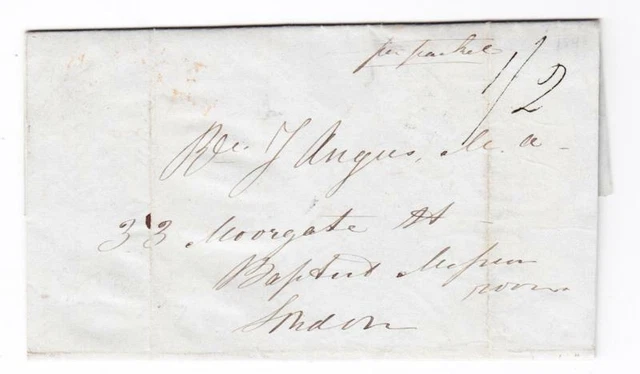 per packet
1/2
Rev. J Angus, M. a
33 Moorgate St
Baptist Mission
rooms
London